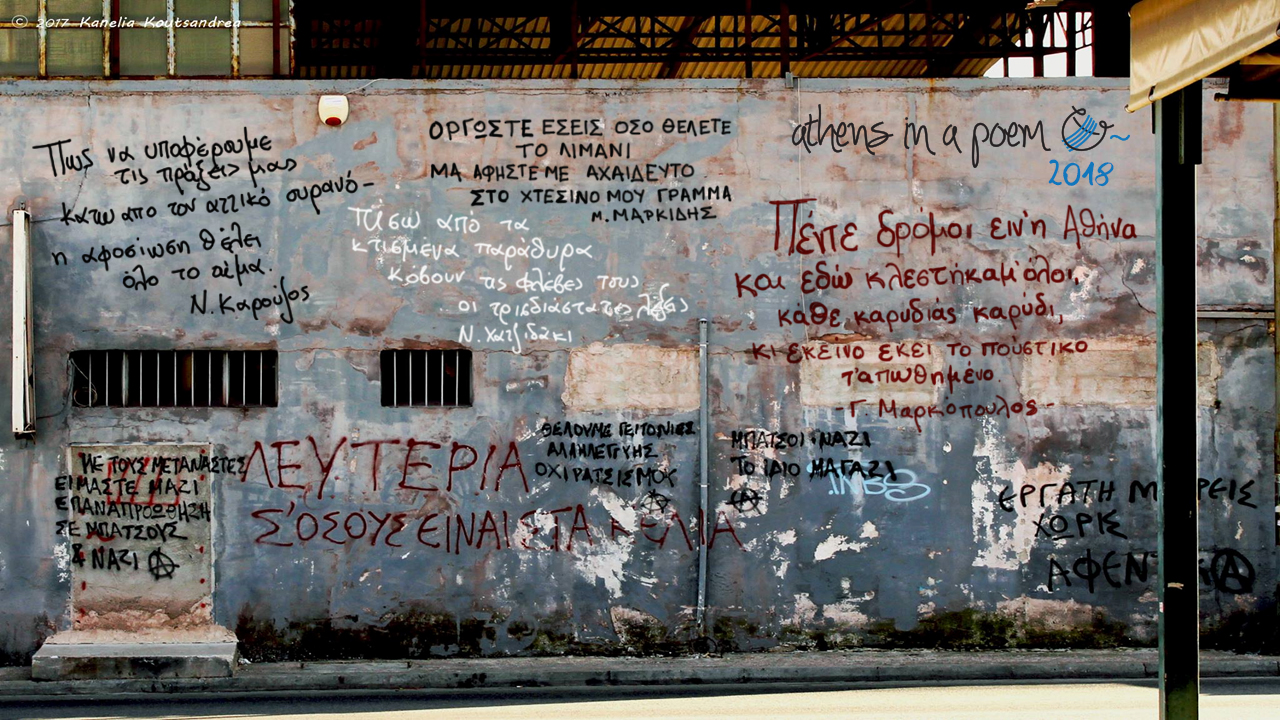 © 2017 Kanelia Koutsandrea
Πως να υποφέρουμε
τις πράξεις μας
κάτω απο τον αττικό ουρανό-
η αφοσίωση θέλει
όλο το αίμα.
Ν. Καρούζος
ΟΡΓΩΣΤΕ ΕΣΕΙΣ ΟΣΟ ΘΕΛΕΤΕ
ΤΟ ΛΙΜΑΝΙ
ΜΑ ΑΦΗΣΤΕ ΜΕ ΑΧΑΙΔΕΥΤΟ
ΣΤΟ ΧΤΕΣΙΝΟ ΜΟΥ ΓΡΑΜΜΑ
Μ. ΜΑΡΚΙΔΗΣ
πίσω από τα
κτισμένα παράθυρα
κόβουν τις φλέβες τους
οι τρισδιάστατες λέξεις
Ν. Χατζιδάκι
athens in a poem
2018
Πέντε δρόμοι ειν'η Αθήνα
και εδώ κλεστήκαμ'όλοι,
κάθε καρυδιάς καρύδι,
κι εκείνο εκεί το πούστικο
τ'απωθημένο.
-Γ. Μαρκόπουλος-
ΜΕ ΤΟΥΣ ΜΕΤΑΝΑΣΤΕΣ
ΕΙΜΑΣΤΕ ΜΑΖΙ
ΕΠΑΝΑΠΡΟΩΘΗΣΗ
ΣΕ ΜΠΑΤΣΟΥΣ
& ΝΑΖΙ Ⓐ
ΛΕΥΤΕΡΙΑ
Σ'ΟΣΟΥΣ ΕΙΝΑΙ ΣΤΑ ΚΕΛΙΑ
ΘΕΛΟΥΜΕ ΓΕΙΤΟΝΙΕΣ
ΑΛΛΗΛΕΓΓΥΗΣ
ΟΧΙ ΡΑΤΣΙΣΜΟΥ
Ⓐ
ΜΠΑΤΣΟΙ ΝΑΖΙ
ΤΟ ΙΔΙΟ ΜΑΓΑΖΙ
Ⓐ
ΕΡΓΑΤΗ Μ ΡΕΙΣ
ΧΩΡΙΣ
ΑΦΕΝΤ Ⓐ